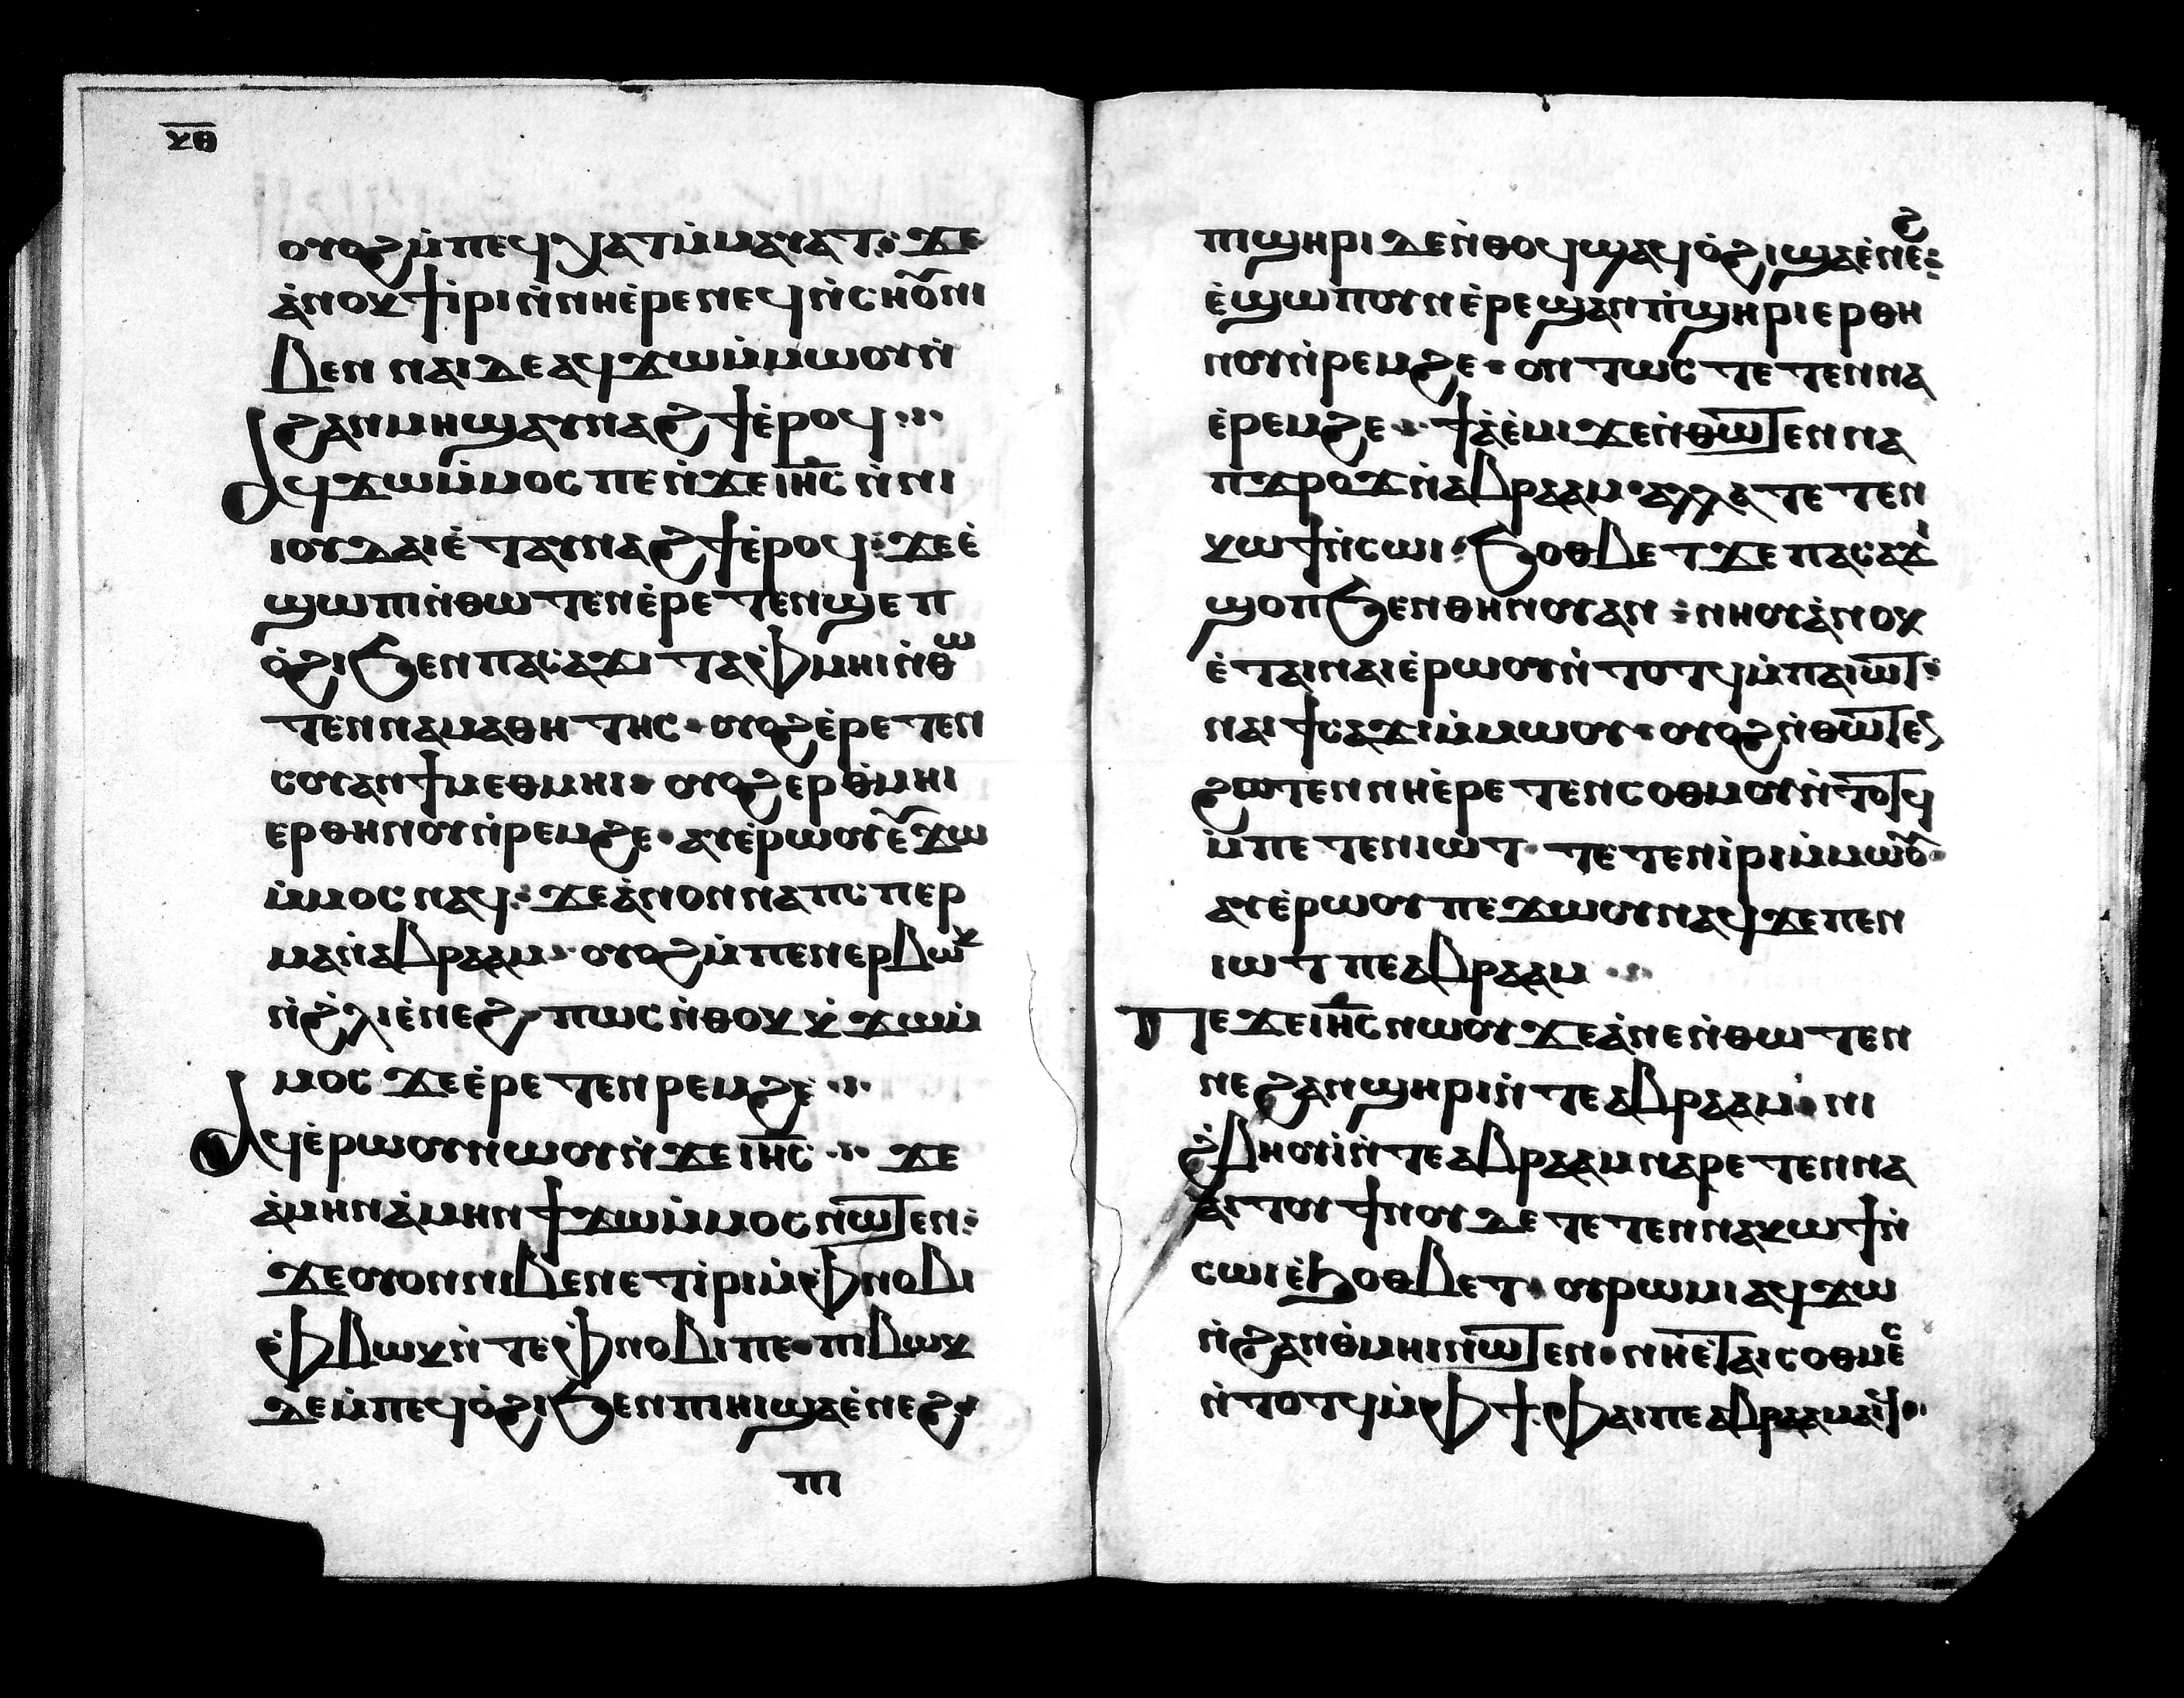 ⲕⲑ
ⲟⲩⲟϩ ⲙ̀ⲡⲉϥⲭⲁⲧ ⲙ̀ⲙⲁⲩⲁⲧ: ϫⲉ
ⲁ̀ⲛⲟⲕ ϯⲓⲣⲓ ⲛ̀ⲛⲏ ⲉ̀ⲣⲉⲛⲉϥ ⲛ̀ⲥⲏⲟⲩ ⲛⲓ
ⲃⲉⲛ ⲛⲁⲓ ⲇⲉ ⲁϥϫⲱ ⲙ̀ⲙⲱⲟⲩ ⲛ̀
ϩⲁⲛⲙⲏϣ ⲁⲩⲛⲁϩϯ ⲉ̀ⲣⲟϥ
Ⲁϥϫⲱ ⲙ̀ⲙⲟⲥ ⲡⲉ ⲛ̀ϫⲉ ⲓⲏ̅ⲥ̅ ⲛ̀ⲛⲓ
ⲓⲟⲩⲇⲁⲓ ⲉ̀ⲧⲁⲩⲛⲁϩϯ ⲉ̀ⲣⲟϥ: ϫⲉ ⲉ̀
ϣⲱⲡ ⲛ̀ⲑⲱⲧⲉⲛ ⲉ̀ⲣⲉⲧⲉⲛϣⲉⲡ
ⲟ̀ϩⲓ ϧⲉⲛ ⲡⲁⲥⲁϫⲓ ⲧⲁⲫⲙⲏⲓ ⲛ̀ⲑⲱ
ⲧⲉⲛ ⲛⲁⲙⲁⲑⲏⲧⲏⲥ· ⲟⲩⲟϩ ⲉ̀ⲣⲉⲧⲉⲛ
ⲥⲟⲩⲁⲛ ϯⲙⲉⲑⲙⲏⲓ· ⲟⲩⲟϩ ⲉⲣ ⲑ̀ⲙⲏⲓ
ⲉⲣ ⲑⲏⲛⲟⲩ ⲛ̀ⲣⲉⲙϩⲉ· ⲁⲩⲉ̀ⲣⲱⲟⲩ ⲉⲩϫⲱ
ⲙ̀ⲙⲟⲥ ⲛⲁϥ: ϫⲉ ⲁ̀ⲛⲟⲛ ⲛⲁ ⲡⲥ̀ⲡⲉⲣ
ⲙⲁ ⲛ̀ⲁⲃⲣⲁⲁⲙ· ⲟⲩⲟϩ ⲙ̀ⲡⲉⲛⲉⲣⲃⲱⲕ
ⲛ̀ϩ̀ⲗⲓ ⲉ̀ⲛⲉϩ· ⲡⲱⲥ ⲛ̀ⲑⲟⲕ ⲕ̀ϫⲱ ⲙ̀
ⲙⲟⲥ ϫⲉ ⲉ̀ⲣⲉⲧⲉⲛⲣⲉⲙϩⲉ
Ⲁϥⲉ̀ⲣⲱⲟⲩ ⲛⲱⲟⲩ ⲛ̀ϫⲉ ⲓⲏ̅ⲥ̅ ϫⲉ
ⲁ̀ⲙⲏⲛ ⲁ̀ⲙⲏⲛ ϯϫⲱ ⲙ̀ⲙⲟⲥ ⲛⲱⲧⲉⲛ:
ϫⲉ ⲟⲩⲟⲛ ⲛⲓⲃⲉⲛ ⲉⲧⲓ̀ⲣⲓ ⲙ̀ⲫⲛⲟⲃⲓ
ⲉ̀ⲫⲃⲱⲕ ⲛ̀ⲧⲉ ⲫⲛⲟⲃⲓ ⲡⲉ· ⲡⲓⲃⲱⲕ
ⲇⲉ ⲙ̀ⲡⲉϥⲟ̀ϩⲓ ϧⲉⲛ ⲡⲓⲏⲓ ϣⲁ ⲉ̀ⲛⲉϩ
ⲡⲓ
ⲡⲓϣⲏⲣⲓ ⲇⲉ ⲛ̀ⲑⲟϥ ϣⲁϥⲟ̀ϩⲓ ϣⲁ ⲉ̀ⲛⲉϩ:
ⲉ̀ϣⲱⲡ ⲟⲩⲛ ⲉ̀ⲣⲉϣⲁⲛ ⲡϣ̀ⲏⲣⲓ ⲉⲣ ⲑⲏ
ⲛⲟⲩ ⲛ̀ⲣⲉⲙϩⲉ· ⲟⲛⲧⲱⲥ ⲧⲉⲧⲉⲛⲛⲁ
ⲉ̀ⲣⲉⲙϩⲉ ϯⲁ̀ⲉ̀ⲙⲓ ϫⲉ ⲛ̀ⲑⲱⲧⲉⲛ ⲛⲁ
ⲡ̀ϫⲣⲟϫ ⲛ̀ⲁⲃⲣⲁⲁⲙ· ⲁⲗⲗⲁ ⲧⲉⲧⲉⲛ
ⲕⲱϯ ⲛ̀ⲥⲱⲓ· ϧⲟⲑⲃⲉⲧ ϫⲉ ⲡⲁⲥⲁϫⲓ
ϣⲟⲡ ϧⲉⲛ ⲑⲏⲛⲟⲩ ⲁⲛ: ⲛⲏⲟⲩ ⲁ̀ⲛⲟⲕ
ⲉ̀ⲧⲁⲓⲛⲁⲓ ⲉ̀ⲣⲱⲟⲩ ⲛ̀ⲧⲟⲧϥ ⲙ̀ⲡⲁⲓⲱⲧ:
ⲛⲁⲓ ϯⲥⲁϫⲓ ⲙ̀ⲙⲱⲟⲩ· ⲟⲩⲟϩ ⲛ̀ⲑⲱⲧⲉⲛ
ϩⲱⲧⲉⲛ ⲛⲏ ⲉ̀ⲣⲉⲧⲉⲛⲥⲟⲑⲙⲟⲩ ⲛ̀ⲧⲟⲧϥ
ⲙ̀ⲡⲉⲧⲉⲛⲓⲱⲧ· ⲧⲉⲧⲉⲛⲓ̀ⲣⲓ ⲙ̀ⲙⲱⲟⲩ·
ⲁⲩⲉ̀ⲣⲱⲟⲩ ⲡⲉϫⲱⲟⲩ ⲛⲁϥ ϫⲉ ⲡⲉⲛ
ⲓⲱⲧ ⲡⲉ ⲁⲃⲣⲁⲁⲙ
Ⲡⲉϫⲉ ⲓⲏ̅ⲥ̅ ⲛⲱⲟⲩ ϫⲉ ⲁ̀ⲛⲉ ⲛ̀ⲑⲱⲧⲉⲛ
ⲛⲉ ϩⲁⲛϣⲏⲣⲓ ⲛ̀ⲧⲉ ⲁⲃⲣⲁⲁⲙ· ⲛⲓ
ϩ̀ⲃⲏⲟⲩⲓ̀ ⲛ̀ⲧⲉ ⲁⲃⲣⲁⲁⲙ ⲛⲁⲣⲉⲧⲉⲛⲛⲁ
ⲁⲓⲧⲟⲩ ϯⲛⲟⲩ ⲇⲉ ⲧⲉⲧⲉⲛⲛⲁⲕⲱϯ ⲛ̀
ⲥⲱⲓ ⲉ̀ϧⲟⲑⲃⲉⲧ· ⲟⲩⲣⲱⲙⲓ ⲁϥϫⲱ
ⲛ̀ϩⲁⲛⲑ̀ⲙⲏⲓ ⲛⲱⲧⲉⲛ· ⲛⲏ ⲉ̀ⲧⲁⲓⲥⲟⲑⲙⲉ
ⲛ̀ⲧⲟⲧϥ ⲙ̀ⲫϯ ⲫⲁⲓ ⲡⲉ ⲁⲃⲣⲁⲁⲙ ⲁⲓϥ